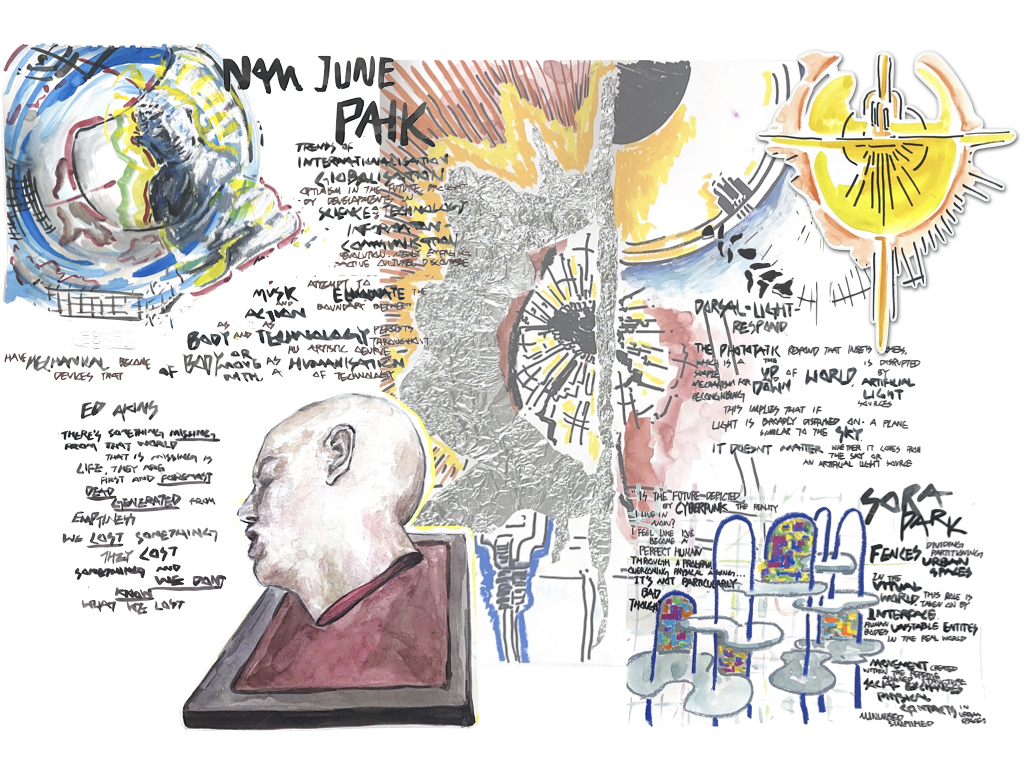 NAM JUNE
PAIK
TRENDS OF
INTERNATIONALISATION
GLOBALISATION
OPTIMISM IN THE FUTURE
BY DEVELOPMENTS IN
SCIENCE & TECHNOLOGY
INFORMATION
COMMUNICATION
ATTEMPT TO
MUSIC ELIMINATE THE
AND BOUNDARY BETWEEN
ACTION
AS AS
BODY AND TECHNOLOGY PERSISTS
THROUGHOUT
HAVE MECHANICAL BECOME OF BODY OR AS HUMANISATION
DEVICES THAT MOVE WITH A OF TECHNOLOGY
ED AKINS
THERE'S SOMETHING MISSING,
FROM THAT WORLD
THAT IS MISSING IS
LIFE, THEY ARE
FIRST AND FOREMOST
DEAD
GENERATED FROM
EMPTINESS
WE LOST SOMETHING
THEY LOST
SOMETHING AND
WE DON'T
KNOW
WHAT WE LOST
DORSAL-LIGHT-
RESPOND
THE PHOTOTATIC RESPOND THAT INSECTS
WHICH IS A THE IS DISRUPTED
SIMPLE UP OF WORLD, BY
MECHANISM FOR AND ARTIFICIAL
RECONGNISING DOWN LIGHT
SOURCES
THIS IMPLIES THAT IF
LIGHT IS BROADLY DISTRIBUTED ON A PLANE
SIMILAR TO THE SKY
IT DOESN'T MATTER WHETHER IT COMES FROM
THE SKY OR
AN ARTIFICIAL LIGHT SOURCE
"IS THE FUTURE DEPICTED
BY CYBERPUNK THE REALITY
I LIVE IN
NOW?
I FEEL LIKE I'VE
BECOME A
PERFECT HUMAN
THROUGH A PROGRAM
OVERCOMING PHYSICAL AGEING...
IT'S NOT PARTICULARLY
BAD
THOUGH"
SORA
PARK
FENCES, DIVIDING
PARTITIONING
URBAN
SPACES
IN THE
VIRTUAL
WORLD, THIS ROLE IS
TAKEN ON BY
INTERFACE.
HUMAN
BODIES UNSTABLE ENTITES
IN THE REAL WORLD
MOVEMENT CREATED
WITHIN THE
STRUCTURE
SOCIAL EXCHANGES
PHYSICAL
CONTACTS IN
URBAN
SPACES
MINIMISED
SIMPLIFIED